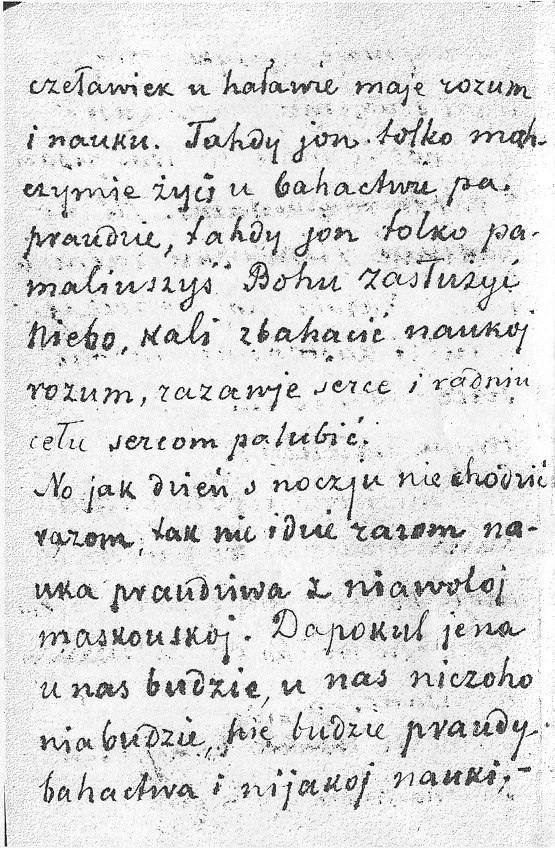 czeławiek u haławie maje rozum
i nauku. Tahdy jon tolko mah-
czymie żyći u bahactwi pa-
praudzie, tahdy jon tolko pa-
maliuszyś Bohu zasłużyć
Niebo, kali zbahacić naukoj
rozum, razawje serce i radniu
cełu sercom palubić.
No jak dzień s noczju nie chodzić
razom, tak nie idzie razom na-
uka praudziwa z niawoloj
maskouskoj. Dapokul jena
u nas budzie, u nas niczoho
niabudzie, nie budzie praudy
bahactwa i nijakoj nauki,-